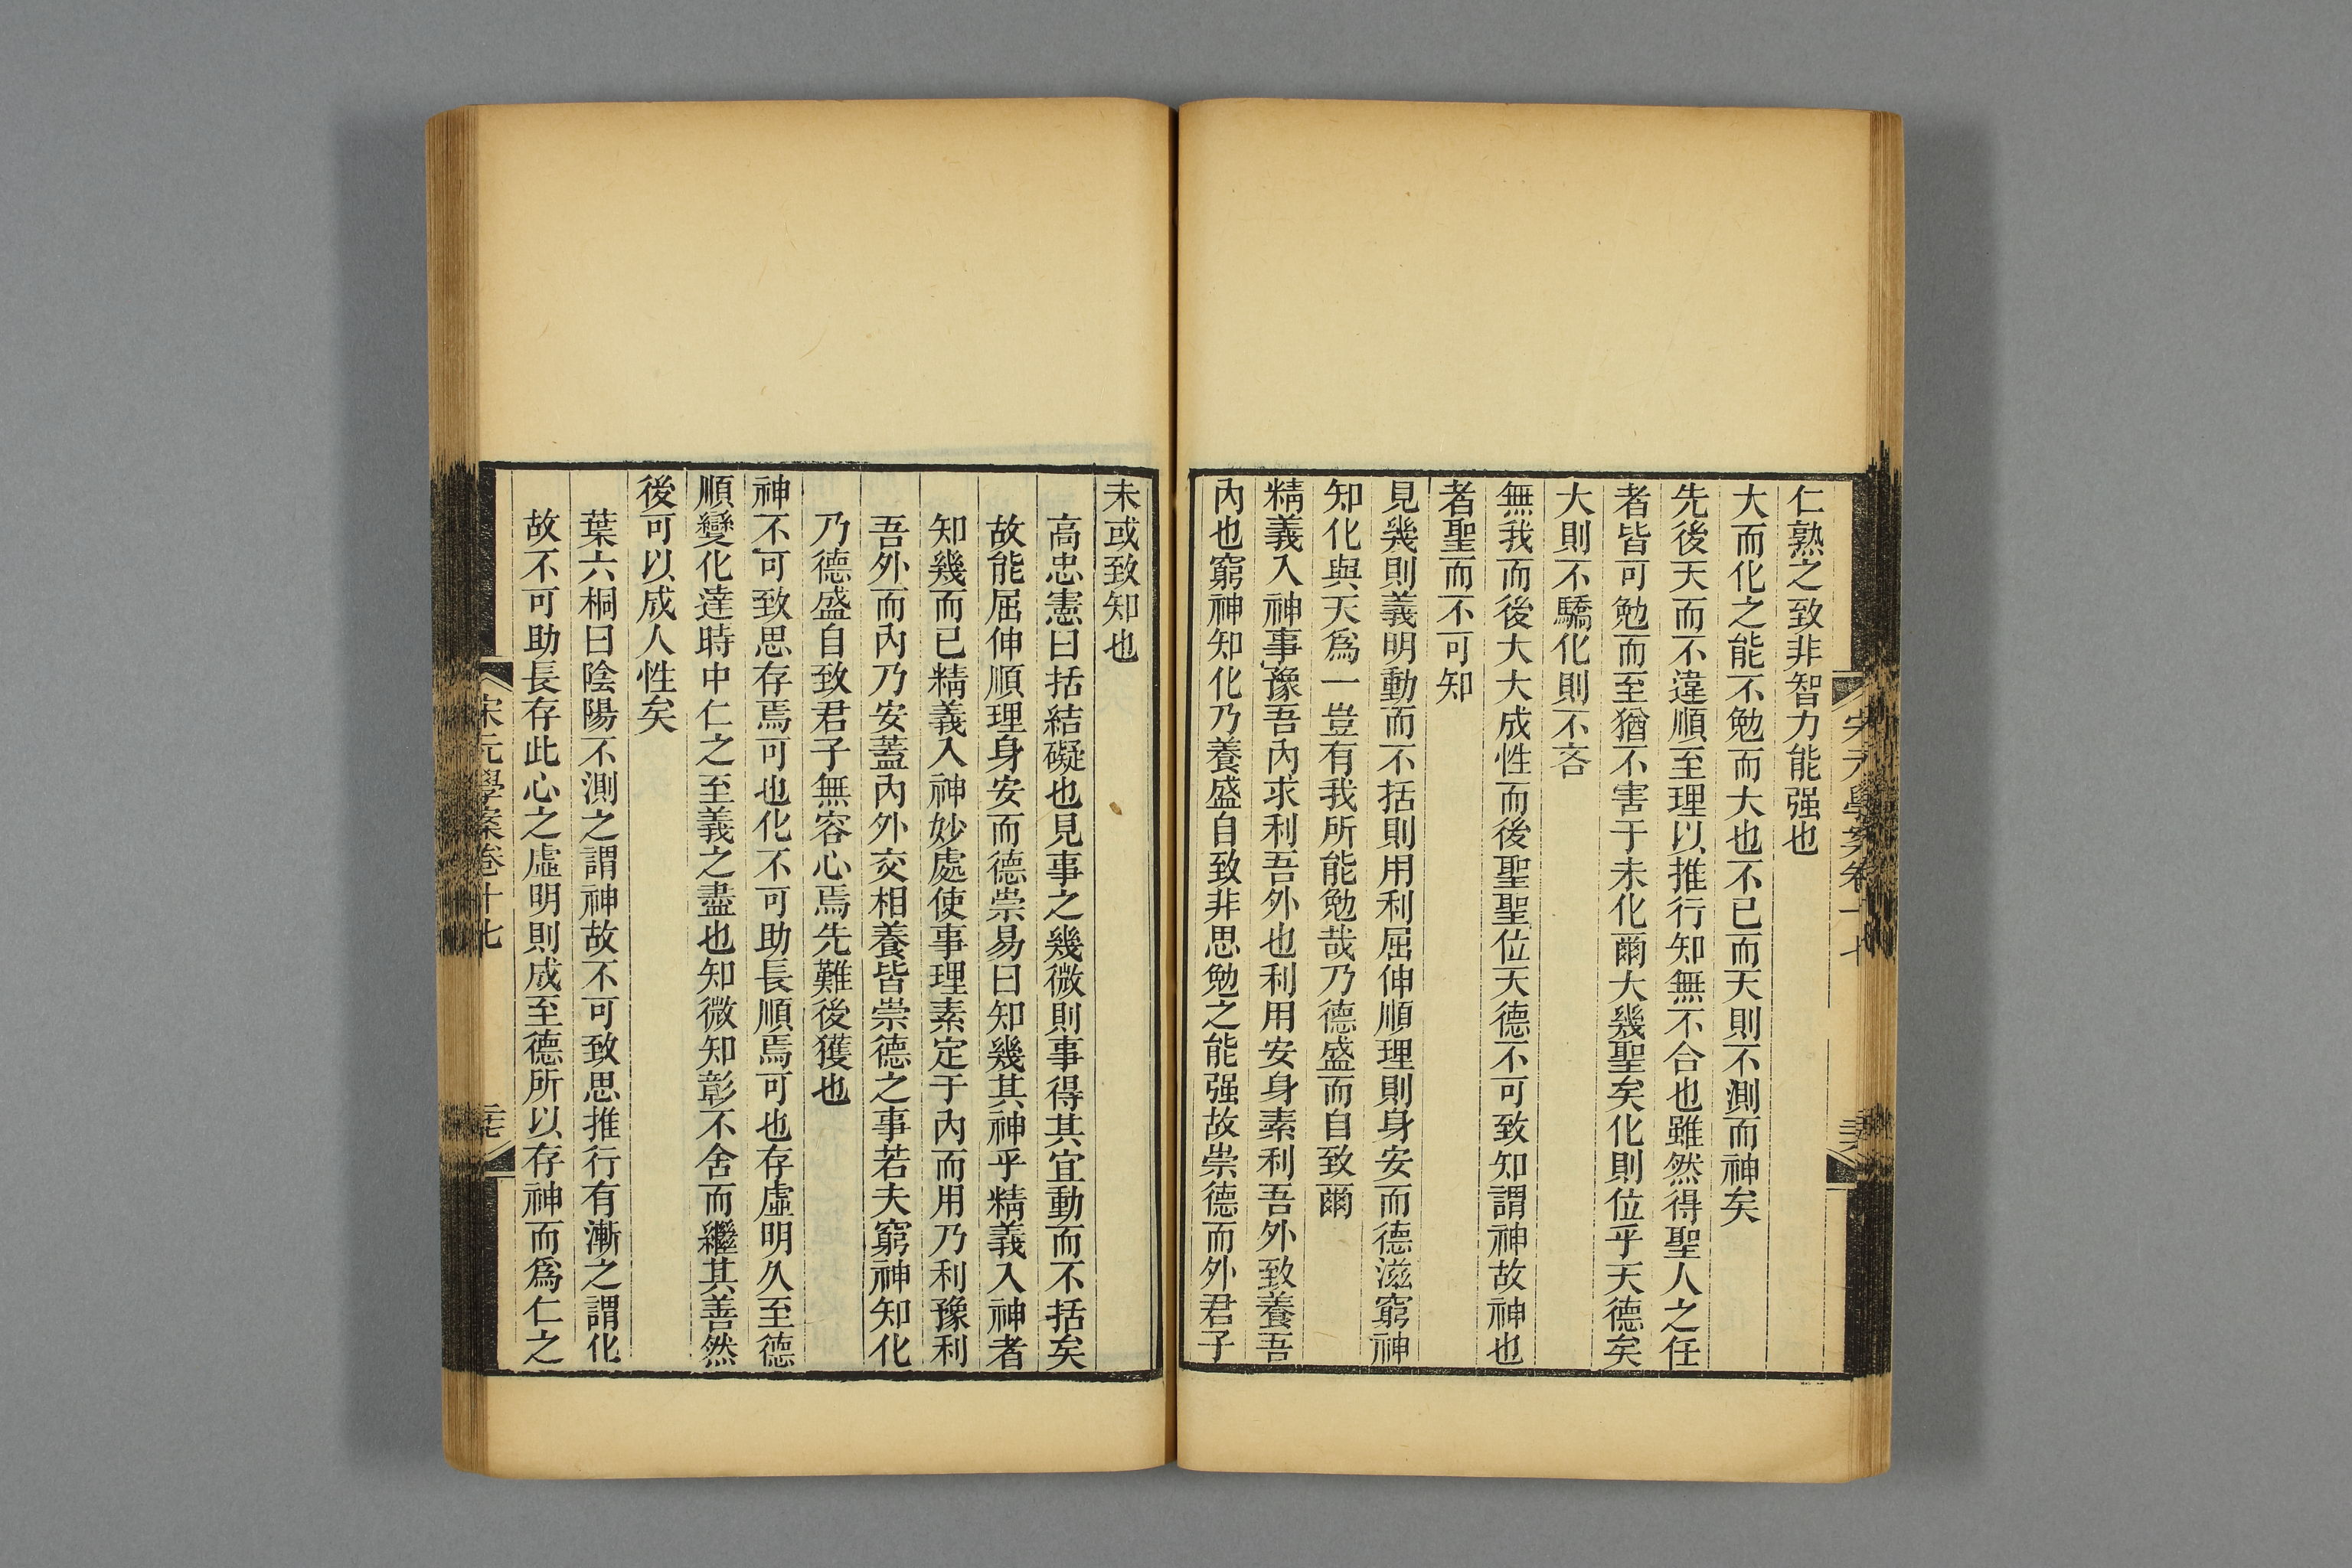 仁熟之致非智力能强也
大而化之能不勉而大也不已而天則不測而神矣
先後天而不違順至理以推行知無不合也雖然得聖人之任
者皆可勉而至猶不害于未化爾大幾聖矣化則位乎天德矣
大則不驕化則不吝
無我而後大大成性而後聖聖位天德不可致知謂神故神也
者聖而不可知
見幾則義明動而不括則用利屈伸順理則身安而德滋窮神
知化與天爲一豈有我所能勉哉乃德盛而自致爾
精義入神事豫吾內求利吾外也利用安身素利吾外致養吾
內也窮神知化乃養盛自致非思勉之能强故崇德而外君子
未或致知也
高忠憲曰括結礙也見事之幾微則事得其宜動而不括矣
故能屈伸順理身安而德崇易曰知幾其神乎精義入神者
知幾而已精義入神妙處使事理素定于內而用乃利豫利
吾外而內乃安蓋內外交相養皆崇德之事若夫窮神知化
乃德盛自致君子無容心焉先難後獲也
神不可致思存焉可也化不可助長順焉可也存虛明久至德
順變化達時中仁之至義之盡也知微知彰不舍而繼其善然
後可以成人性矣
葉六桐曰陰陽不測之謂神故不可致思推行有漸之謂化
故不可助長存此心之虛明則成至德所以存神而爲仁之
宋元學案卷十七